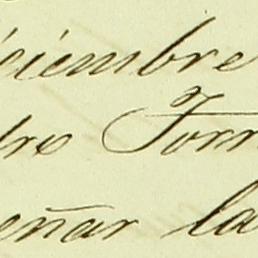 iciembre
dro Torr
eñar la